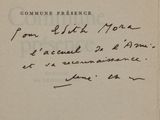 COMMUNE PRÉSENCE
Pour Edith Mora
l'accueil de l'Ami
et sa reconnaissance.